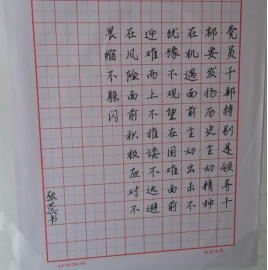 党员干部特别是领导干
部要发扬历史主动精神
在机遇面前主动出击不
犹豫不观望在困难面前
迎难而上不推诿不逃避
在风险面前积极应对不
畏缩不躲闪